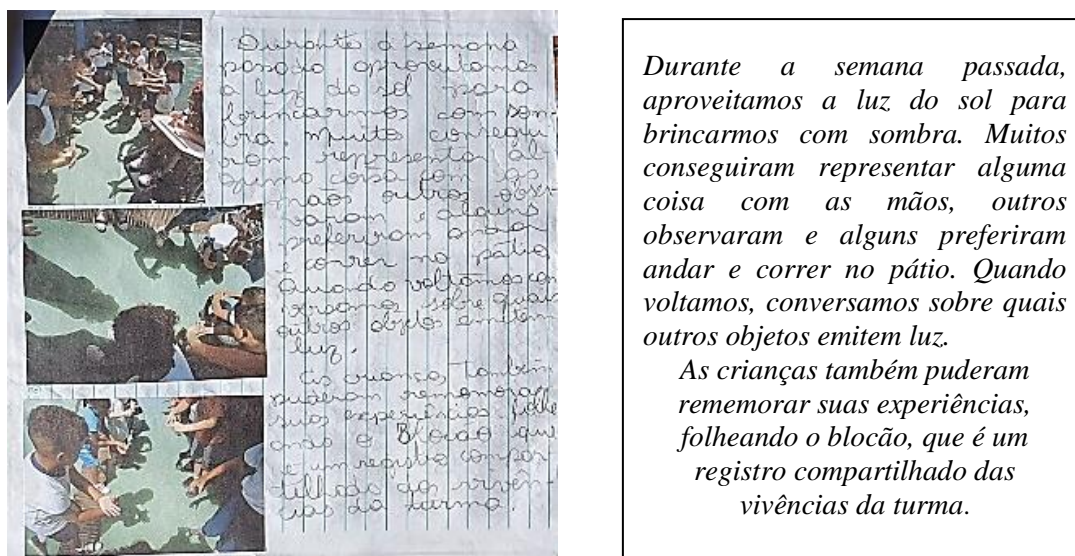 Durante a semana
passada aproveitamos
a luz do sol para
brincarmos com som-
bra. Muitos consegui-
ram representar al-
guma coisa com as
mãos outros obser-
varam e alguns
preferiram andar
e correr no pátio
Quando voltamos con
versamos sobre quais
outros objetos emitem
luz.
As crianças também
puderam rememorar
suas experiências folhe
ando o Blocão que
é um registro compar
tilhado das vivên-
cias da turma.
Durante a semana passada,
aproveitamos a luz do sol para
brincarmos com sombra. Muitos
conseguiram representar alguma
coisa com as mãos, outros
observaram e alguns preferiram
andar e correr no pátio. Quando
voltamos, conversamos sobre quais
outros objetos emitem luz.
As crianças também puderam
rememorar suas experiências,
folheando o blocão, que é um
registro compartilhado das
vivências da turma.